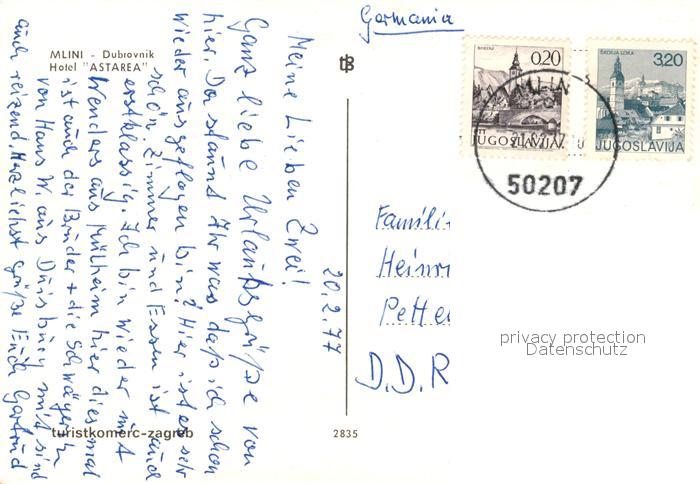 Germania
MLINI - Dubrovnik
Hotel "ASTAREA"
BLED
0,20
JUGOSLAVIJA
ŠKOFJA LOKA
3,20
JUGOSLAVIJA
MLINI
50207
20.2.77
Meine Lieben Zwei!
Ganz liebe Urlaubsgrüße von
hier. Da staunt Ihr was daß ich schon
wieder ausgeflogen bin? Hier ist es sehr
schön. Zimmer und Essen ist auch
erstklassig. Ich bin wieder mit
Wenders aus Mülheim hier diesmal
ist auch der Bruder + die Schwägerin
von Hans W. aus Duisburg mit sind
auch reizend. Herzlichst grüße Euch Gertrud
Famili
Heinr
Pette
D.D.R
privacy protection
Datenschutz
turistkomerc-zagreb
2835